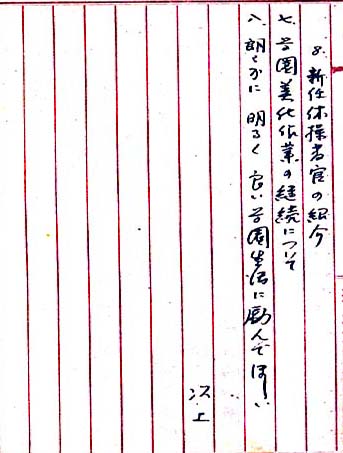 8 新任体操教官の紹介
七、学園美化作業の継続について
八、朗らかに 明るく 良い学園生活に励んでほしい
以上